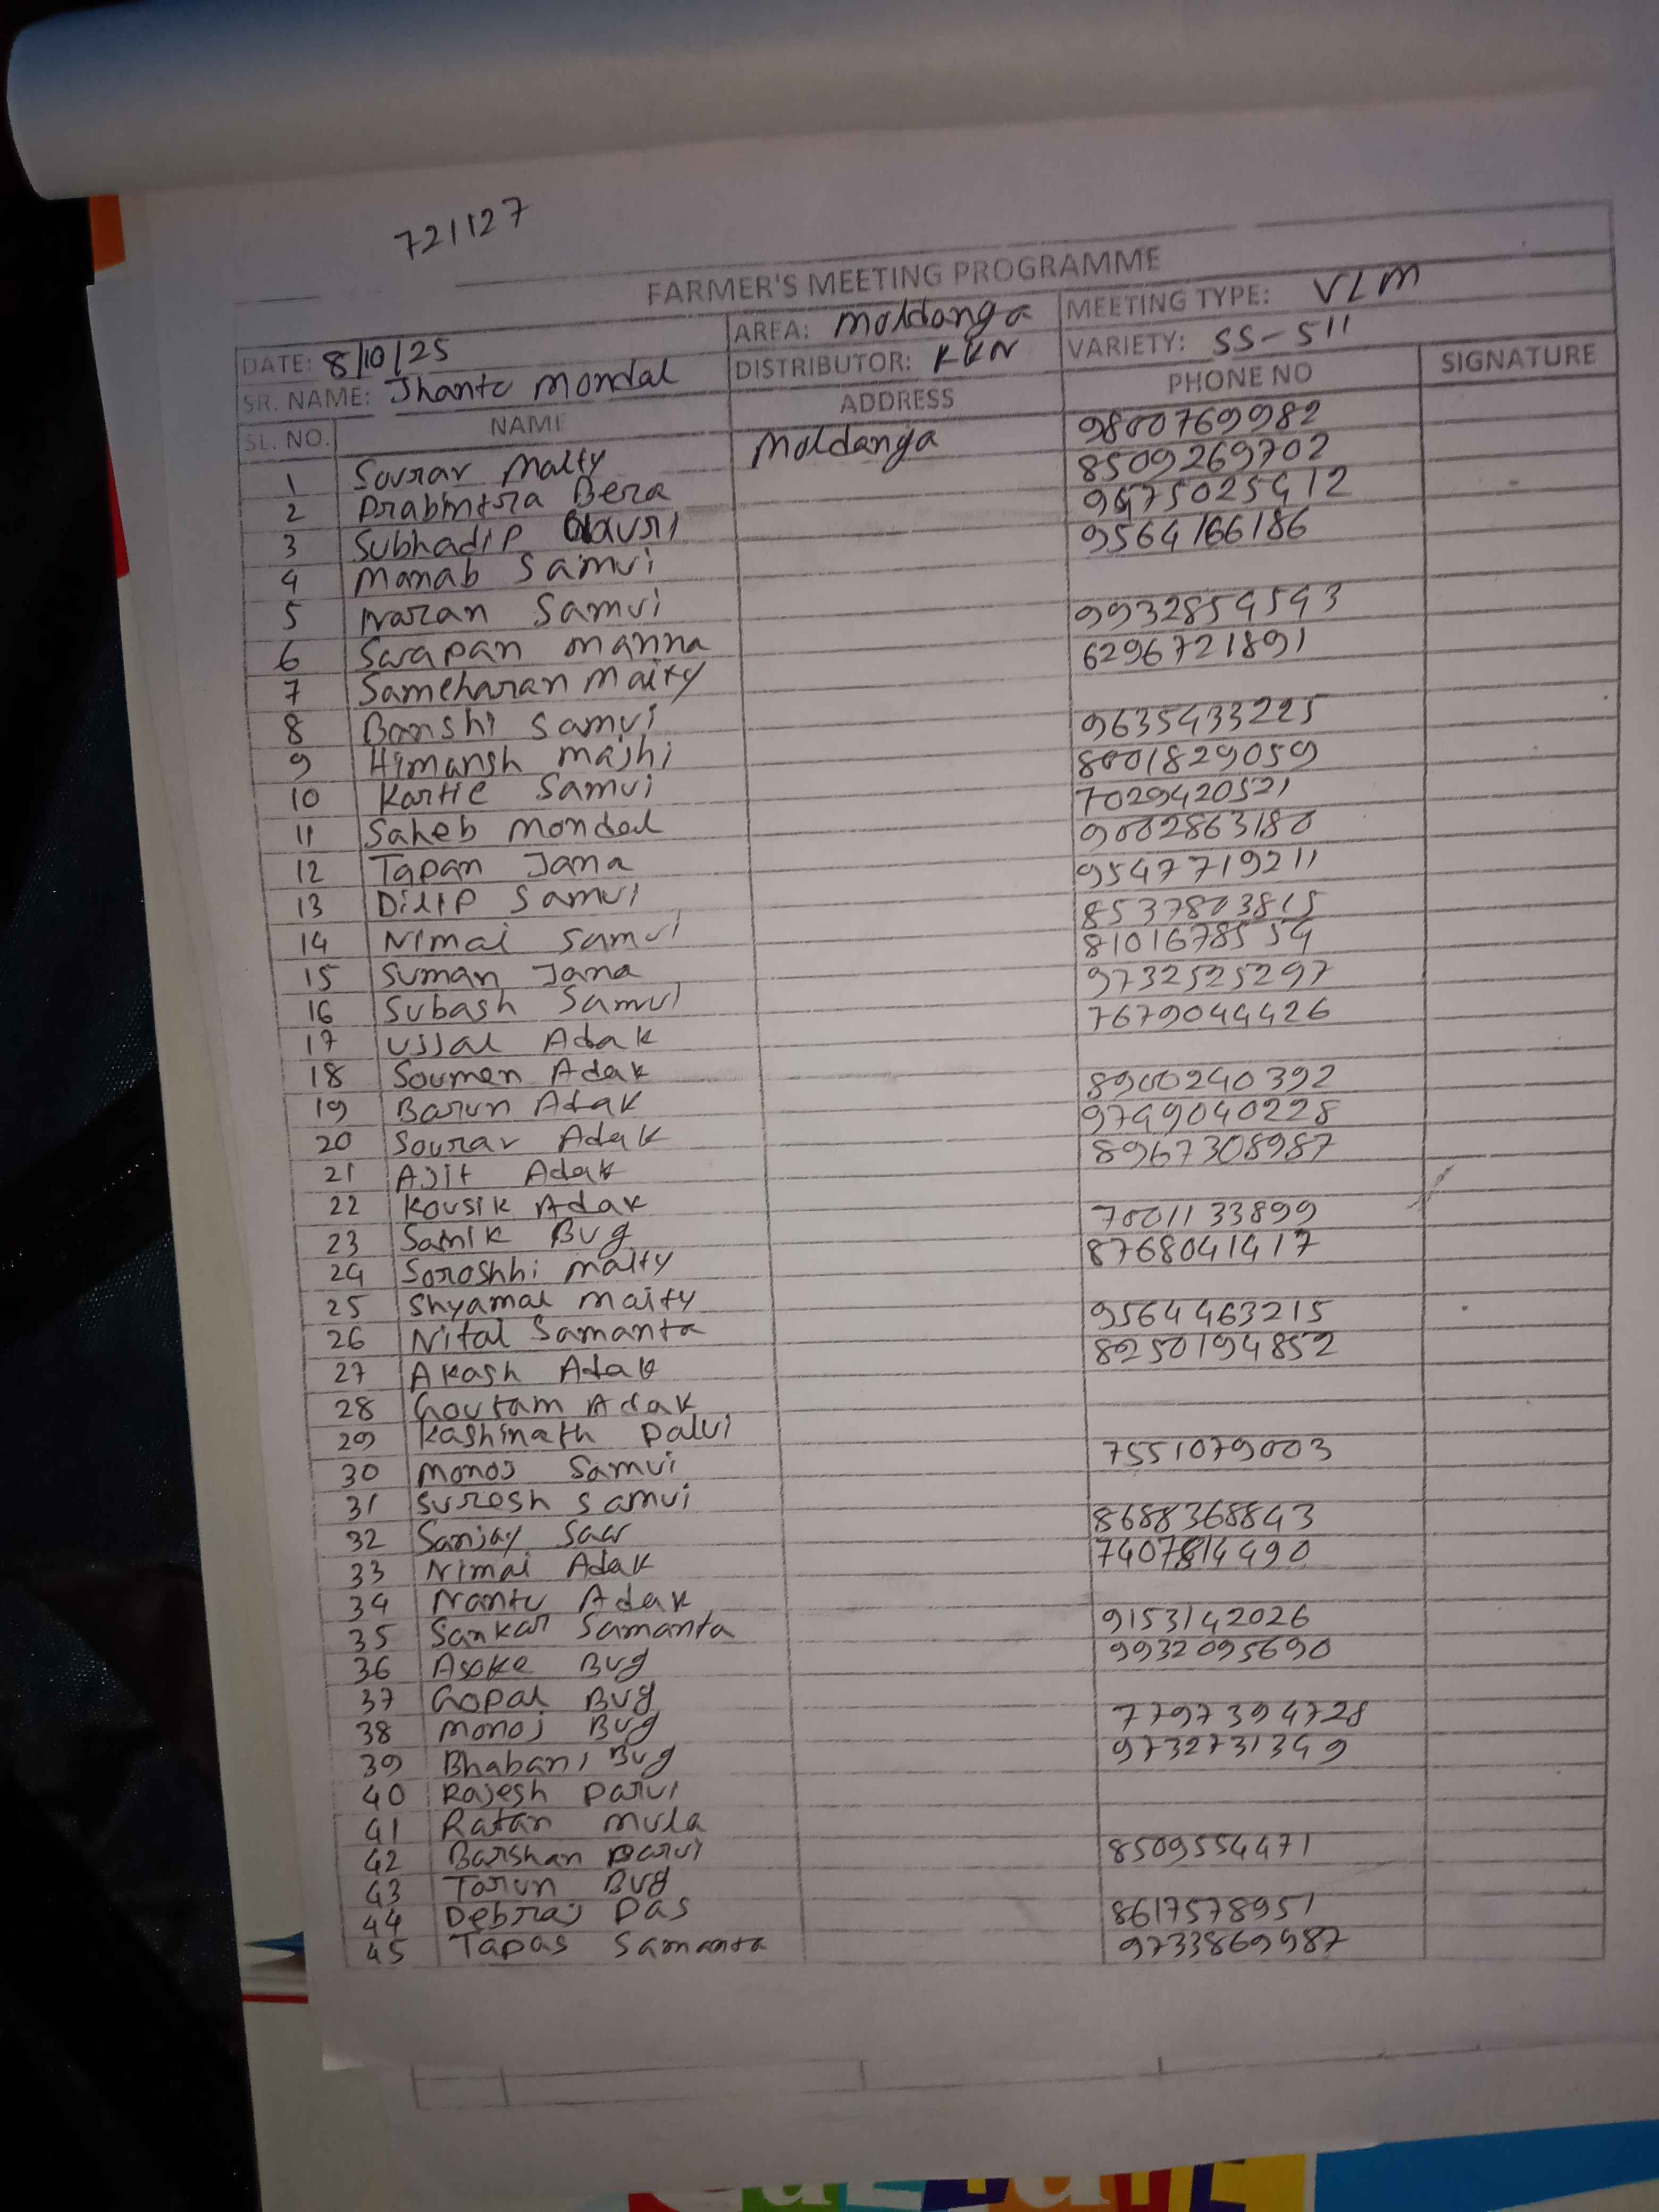 721127
FARMER'S MEETING PROGRAMME
DATE: 8/10/25 AREA: Moldanga MEETING TYPE: VLM
SR. NAME: Jhantu Mondal DISTRIBUTOR: KKN VARIETY: SS-511
SL. NO. NAME ADDRESS PHONE NO SIGNATURE
1 Sourav Maity Moldanga 9800769982
2 Bera 8509269702
3 Subhadip
4 Manab Samui 9564166186
5 Naran Samui
6 Swapan Manna 9932854543
7 Sameharan Maity 6296721891
8 Banshi Samui
9 Himansh Majhi 9635433225
10 Kartic Samui 8001829059
11 Saheb Mondal 7029420521
12 Tapan Jana 9002863180
13 Dilip Samui 9547719211
14 Nimai Samui 8537803815
15 Suman Jana 8101678554
16 Subash Samui 9732525297
17 Ujjal Adak 7679044426
18 Soumen Adak
19 Barun Adak 8900240392
20 Sourav Adak 9749040228
21 Ajit Adak 8967308987
22 Kousik Adak
23 Samik Bug 7001133899
24 Soroshhi Maity 8768041417
25 Shyamal Maity
26 Nital Samanta 9564463215
27 Akash Adak 8250194852
28 Goutam Adak
29 Kashinath Palui
30 Monoj Samui 7551079003
31 Suresh Samui
32 Sanjay Saw 8688368843
33 Nimai Adak 7407814490
34 Nantu Adak
35 Sankar Samanta 9153142026
36 Asoke Bug 9932095690
37 Gopal Bug
38 Monoj Bug 7797394728
39 Bhabani Bug 9732731349
40 Rajesh Parui
41 Ratan Mula
42 Barshan Parui 8509554471
43 Tarun Bug
44 Debraj Das 8617578951
45 Tapas Samanta 9733869987